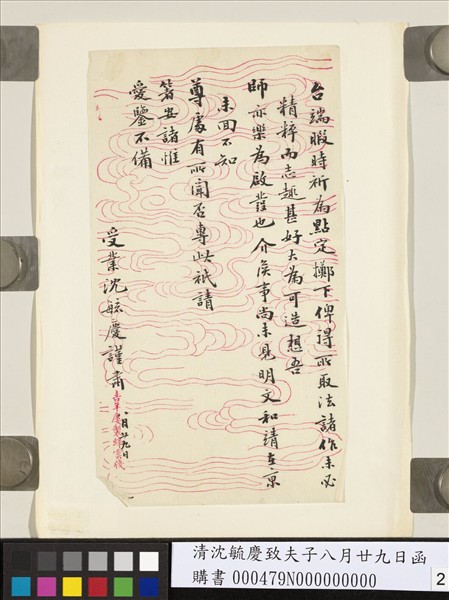 台端暇時祈為點定擲下俾得所取法諸作未必
精粹而志趣甚好大為可造想吾
師亦樂為啟發也介侯事尚未見明文和靖在京
未回不知
尊處有所聞否專此祇請
箸安諸惟
愛鑒不備
受業沈毓慶謹肅
八月廿九日
清沈毓慶致夫子八月廿九日函
購書 000479N000000000
2